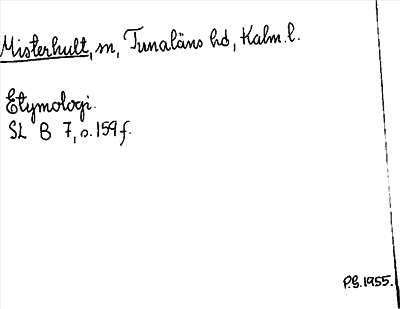 Misterhult, sn, Tunaläns hd, Kalm. l.
Etymologi.
SL B 7, s. 159 f.
P.G. 1955.